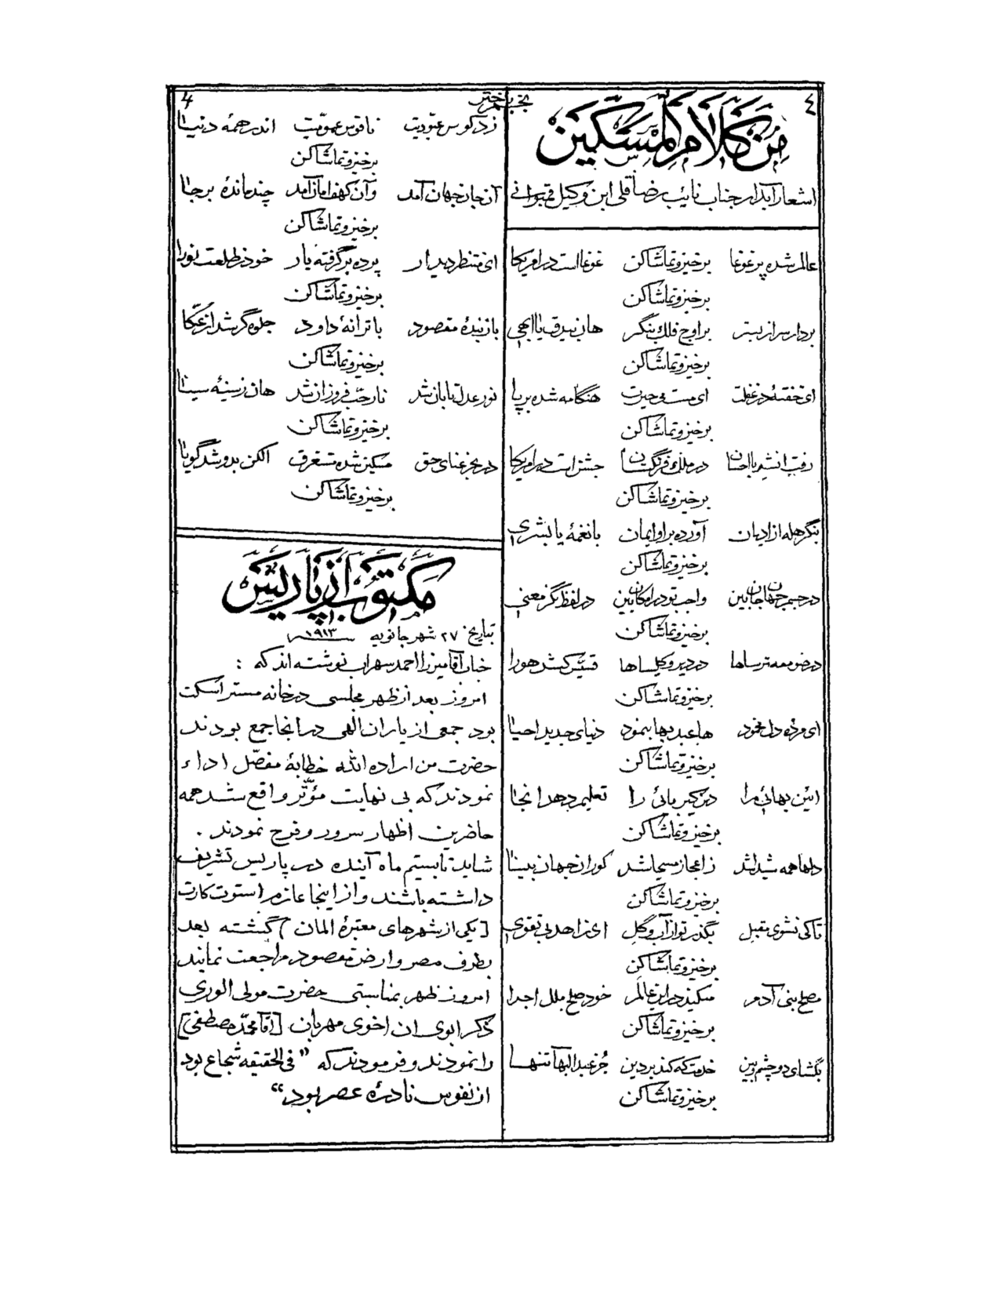 ٤
نجم باختر
4
من كلام المسكين
اشعار آبدار جناب نایب رضاقلی ابن وکیل قیروانی
عالم شده پر غوغا برخیز و تماشا کن غوغا است در امریکا
برخیز و تماشا کن
بردار سر از بستر بر اوج فلک بنگر هان بیرق یا ابهی
برخیز و تماشا کن
ای خفته در غفلت ای مست و حیرت هنگامه شده برپا
برخیز و تماشا کن
در ملک فرنگستان جشن است در امریکا
برخیز و تماشا کن
بنگر همه از ادیان آورده براو ایمان با نغمهٔ یا بشری
برخیز و تماشا کن
در جسم جهان جان بین واجب تو در امکان بین در لفظ نگر معنی
برخیز و تماشا کن
در صومعه ترساها در دیر و کلیساها قسیس کشد هورا
برخیز و تماشا کن
ای مرده دل مخمود ها عبد بها بنمود دنیای جدید احیا
برخیز و تماشا کن
ائین بهائی را دین کبریائی را تعلیم دهد انجا
برخیز و تماشا کن
دلها همه شیدا شد ز اعجاز مسیحا شد کوران جهان بینا
برخیز و تماشا کن
تا کی نشوی مقبل بگذر تو از آب و گل ای زاهد بی تقوی
برخیز و تماشا کن
صلح بنی آدم میکند در این عالم خود صلح ملل اجرا
برخیز و تماشا کن
بگشای دو چشم و بین خدمت که کند بر دین جز عبدالبها تنها
برخیز و تماشا کن
زد کوس عبودیت ناقوس اندر همه دنیا
برخیز و تماشا کن
آن جان جهان آمد وآن کهف امان آمد چند مانده برجا
برخیز و تماشا کن
ای منتظر دیدار پرده بر گرفته یار خود ز طلعت نورا
برخیز و تماشا کن
با زبدهٔ مقصود با ترانهٔ داود جلوه گر شد از عکا
برخیز و تماشا کن
نور عدل تابان شد نار حب فروزان شد هان ز سینهٔ سینا
برخیز و تماشا کن
در بحر غنای حق مسکین شده مستغرق الکن بد و شد گویا
برخیز و تماشا کن
مکتوب از پاریس
بتاریخ ٢٧ شهر جانویه ١٩١٣
جناب آقا میرزا احمد سهراب نوشته اند که :
امروز بعد از ظهر مجلسی در خانه مستر اسکت
بود جمعی از یاران الهی در انجا جمع بودند
حضرت من اراده الله خطابهٔ مفصّل اداء
نمودند که بی نهایت مؤثّر واقع شد همه
حاضرین اظهار سرور و فرح نمودند .
شاید تا بیستم ماه آینده در پاریس تشریف
داشته باشند و از اینجا عازم استوت کارت
[یکی از شهرهای معتبرهٔ المان] گشته بعد
بطرف مصر و ارض مقصود مراجعت نمایند
امروز ظهر بمناسبتی حضرت مولی الوری
ذکر ابوی ان اخوی مهربان [آقا محمد مصطفی]
را نمودند و فرمودند که ” فی الحقیقه شجاع بود
از نفوس نادرهٔ عصر بود “